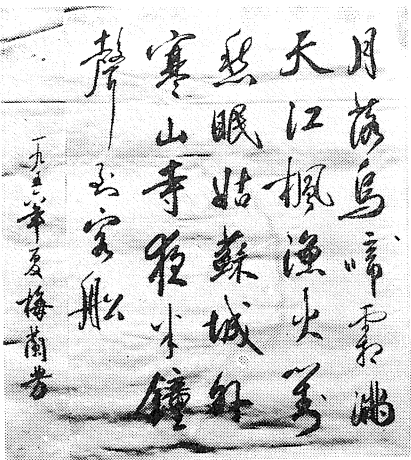 月落烏啼霜滿
天江楓漁火對
愁眠姑蘇城外
寒山寺夜半鐘
聲到客船
一九五六年夏梅蘭芳